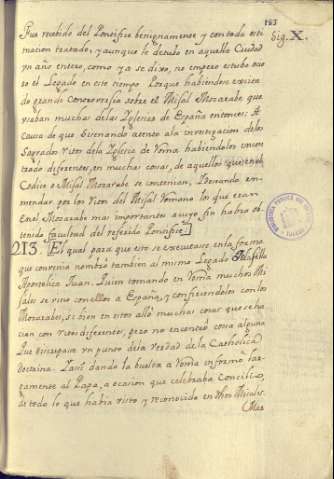 193
Sig. X.
Fue recebido del Pontifice benignamente y con toda esti
macion tratado, y aunque le detubo en aquella Ciudad
un año entero, como ya se dixo, no empero estubo ocio
so el Legado en este tiempo. Porque habiendose
de grande Controversia sobre el Misal Mozarabe que
usaban muchas delas Yglesias de España entonces: A
causa de que buscando atento ala investigacion delos
Sagrados ritos dela Yglesia de Roma habiendolos encon
trado diferentes, en muchas cosas, de aquellos que en el
Codice o Misal Mozarabe se contenian, Deseando en
mendar por los ritos del Misal Romano los que eran
En el Mozarabe mas importantes a cuyo fin habia ob
tenido facultad del referido Pontifice.
213. El qual para que esto se executase en la forma
que convenia nombró tambien al mismo Legado
Apostolico Juan. Quien tomando en Roma muchos Mi
sales se vino con ellos a España, y confiriendolos con los
Mozarabes, se bien en estos alló muchas cosas que se ha
cian con ritos diferentes, pero no encontró cosa alguna
que discrepara un punto dela verdad de la Catholica
Doctrina. Laus dando la buelta a Roma informó lar
gamente al Papa, a ocasion que celebraba Concilio,
de todo lo que habia visto y reconocido en dhos Misales.